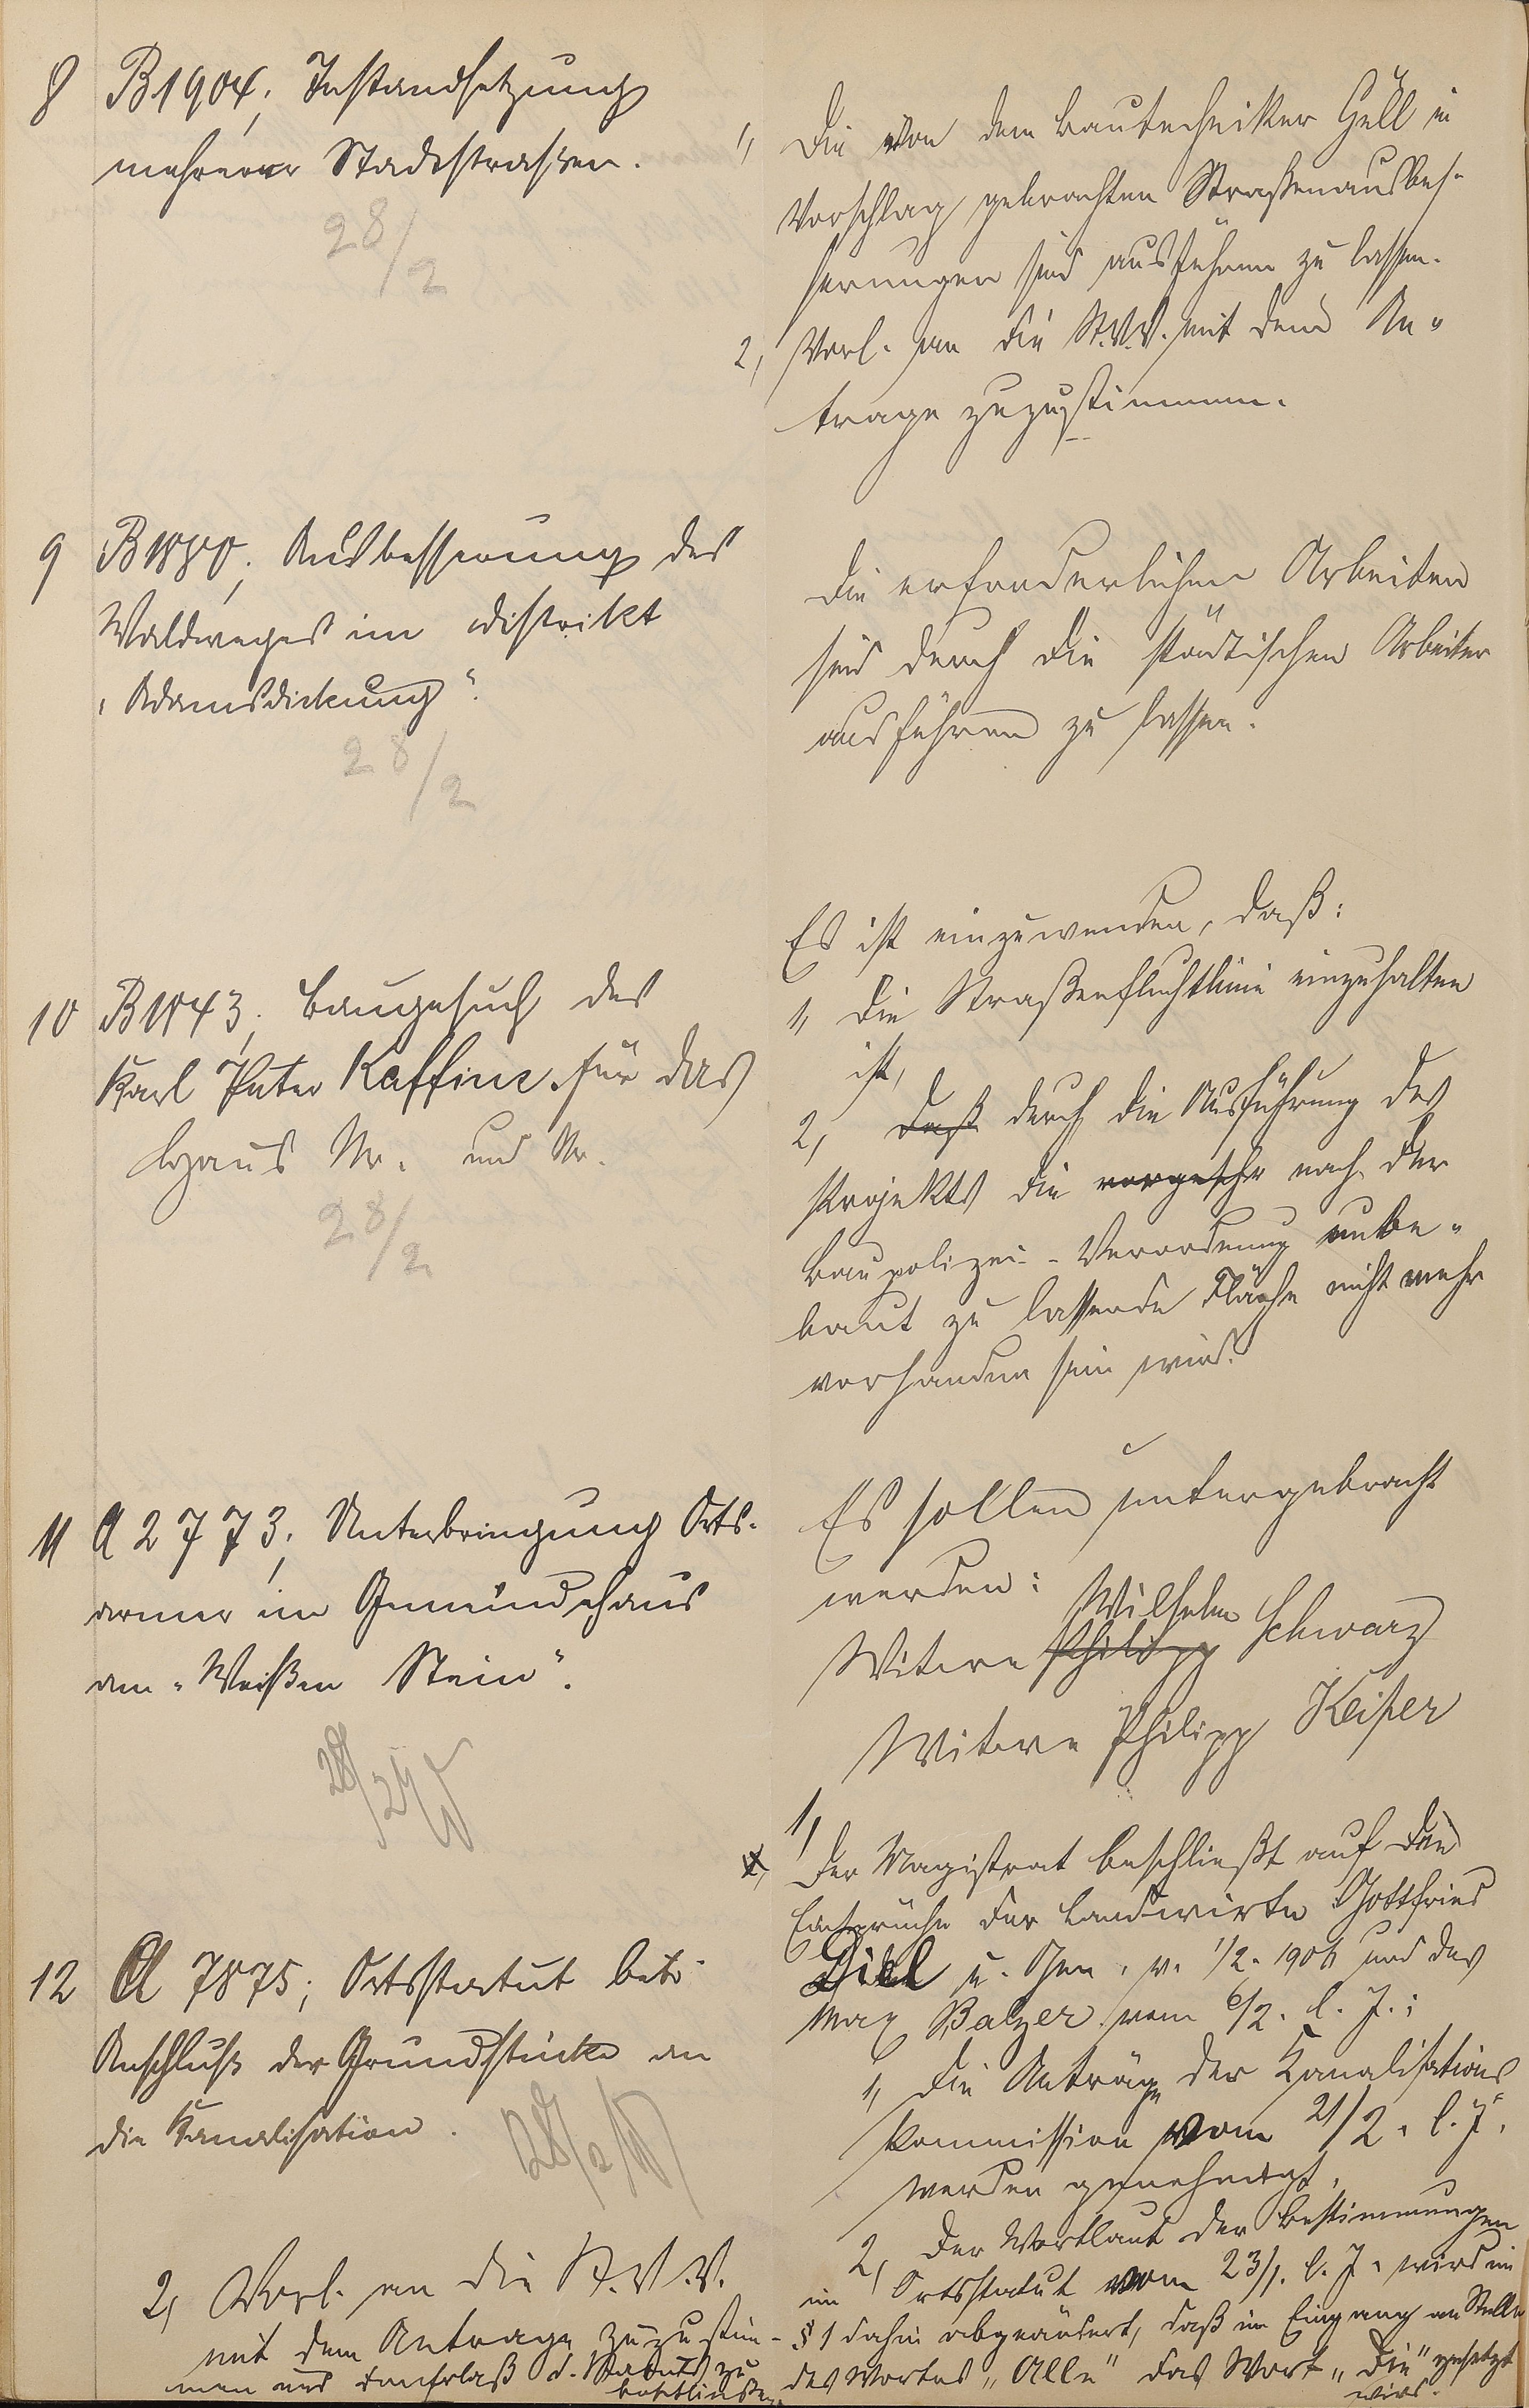 8 B 1904; Instandsetzung
mehrerer Stadtstrassen.
28/2
1, Die von dem Bautechniker Gëll in
Vorschlag gebrachten Straßenausbes-
serungen sind ausführen zu lassen.
2, Vorl. an die St.V.V. mit dem An-
trage zuzustimmen.
9 B 1880; Ausbesserung des
Waldweges im Distrikt
"Adamsdickung".
28/2
Die erforderlichen Arbeiten
sind durch die städtischen Arbeiter
ausführen zu lassen.
10 B 1843; Baugesuch des
Karl Peter Kaffine für das
Haus Nr. und Nr.
28/2
Es ist einzuwenden, daß:
1, die Straßenfluchtlinie einzuhalten
ist,
2, daß durch die Ausführung des
Projekts die vorgesehe nach der
Baupolizei-Verordnung unbe-
baut zu lassende Fläche nicht mehr
vorhanden sein wird.
11 A 2773; Unterbringung Orts-
armer im Gemeindehaus
am "Weißen Stein".
28/2
Es sollen untergebracht
werden:
Wilhelm
Witwe Philipp Schwarz
Witwe Philipp Keiper
12 A 7875; Ortsstatut betr.
Anschluß der Grundstücke an
die Kanalisation.
28/2
2, Vorl. an die St.V.V.
mit dem Antrage zuzustim-
men und den Erlaß d. Statuts zu
beschließen.
1,
Der Magistrat beschließt auf die
Einsprüche der Landwirte Gottfried
Diel u. Gen. v. 1/2. 1906 und des
Max Balzer vom 6/2. l. J.:
1, Die Anträge der Kanalisations
Kommission vom 21/2. l. J.
werden genehmigt.
2, Der Wortlaut der Bestimmungen
im Ortsstatut vom 23/1. l. J. wird im
§ 1 dahin abgeändert, daß im Eingang an Stelle
des Wortes "Alle" das Wort "Die" gesetzt
wird.